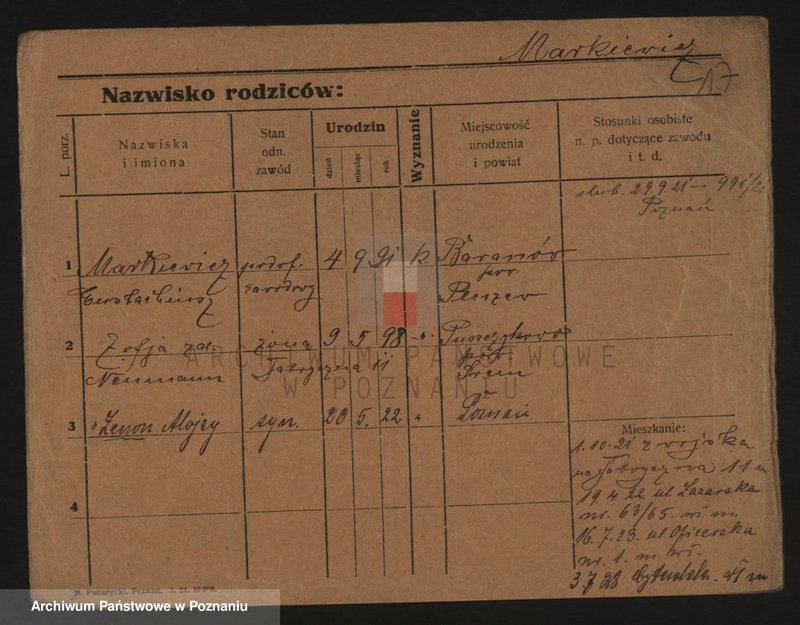 Markiewicz
17
Nazwisko rodziców:
L. porz.
Nazwiska
i imiona
Stan
odn.
zawód
Urodzin
dzień
miesiąc
rok
Wyznanie
Miejscowość
urodzenia
i powiat
Stosunki osobiste
n. p. dotyczące zawodu
i t. d.
ślub. 29.9.21
Poznań
1 Markiewicz 4 9 91 k. Baranów
Eustachiusz zawodowy pow.
Pleszew
2 Zofja zd. żona 9 5 98 Puszczykowo
Neumann Fabryczna 11 Śrem
3 Zenon Alojzy syn. 20 5. 22 " Poznań
4
Mieszkanie:
1.10.21 z wojska
na Fabryczna 11
19 4 22 ul. Łazarska
nr. 63/65.
16.7.23. ul. Oficerska
nr. 1. m.
3 7 28
M. Putiatycki, Poznań. 7. 21. 10 000.
ARCHIWUM PAŃSTWOWE
W POZNANIU
Archiwum Państwowe w Poznaniu